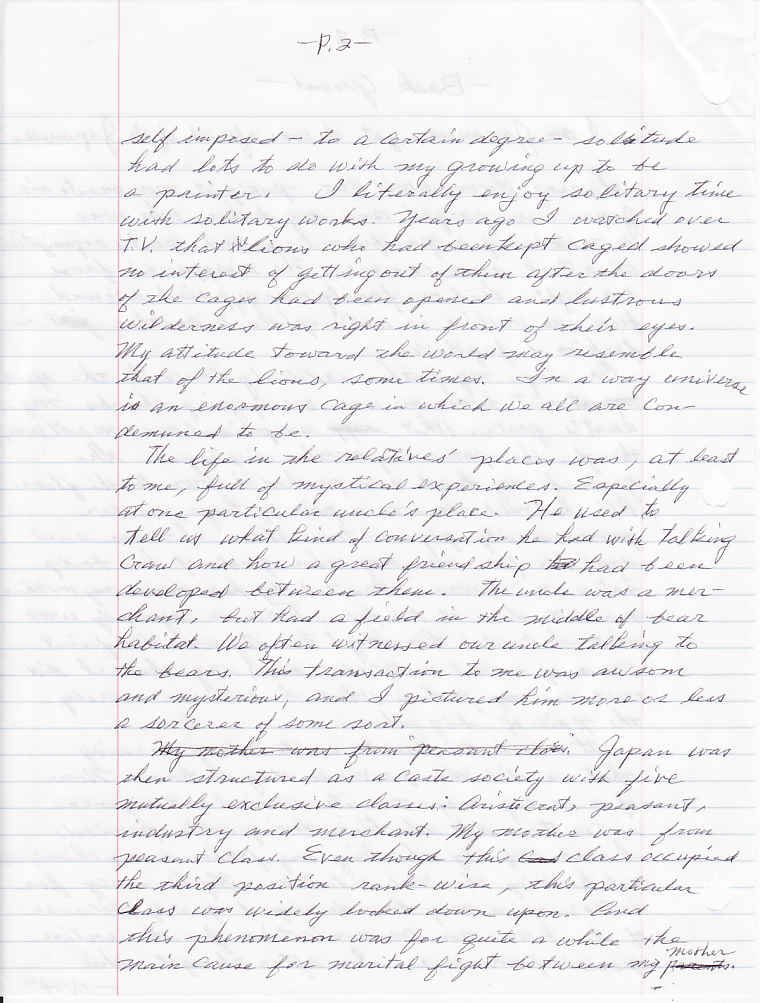 —P.2—
self imposed – to a certain degree – solitude
had lots to do with my growing up to be
a painter. I literally enjoy solitary time
with solitary works. Years ago I watched over
T.V. that lions who had been kept caged showed
no interest of getting out of them after the doors
of the cages had been opened and lustrous
wilderness was right in front of their eyes.
My attitude toward the world may resemble
that of the lions, some times. In a way universe
is an enormous cage in which we all are con-
demuned to be.
The life in the relatives' places was, at least
to me, full of mystical experiences. Especially
at one particular uncle's place. He used to
tell us what kind of conversation he had with talking
craw and how a great friend ship had been
developed between them. The uncle was a mer-
chant, but had a field in the middle of bear
habitat. We often witnessed our uncle talking to
the bears. This transaction to me was awsom
and mysterious, and I pictured him more or less
a sorcerer of some sort.
My mother was from peasant class. Japan was
then structured as a caste society with five
mutually exclusive classes: Aristocrat, peasant,
industry and merchant. My mother was from
peasant class. Even though this class occupied
the third position rank-wise, this particular
class was widely looked down upon. And
this phenomenon was for quite a while the
main cause for marital fight between my mother parents.